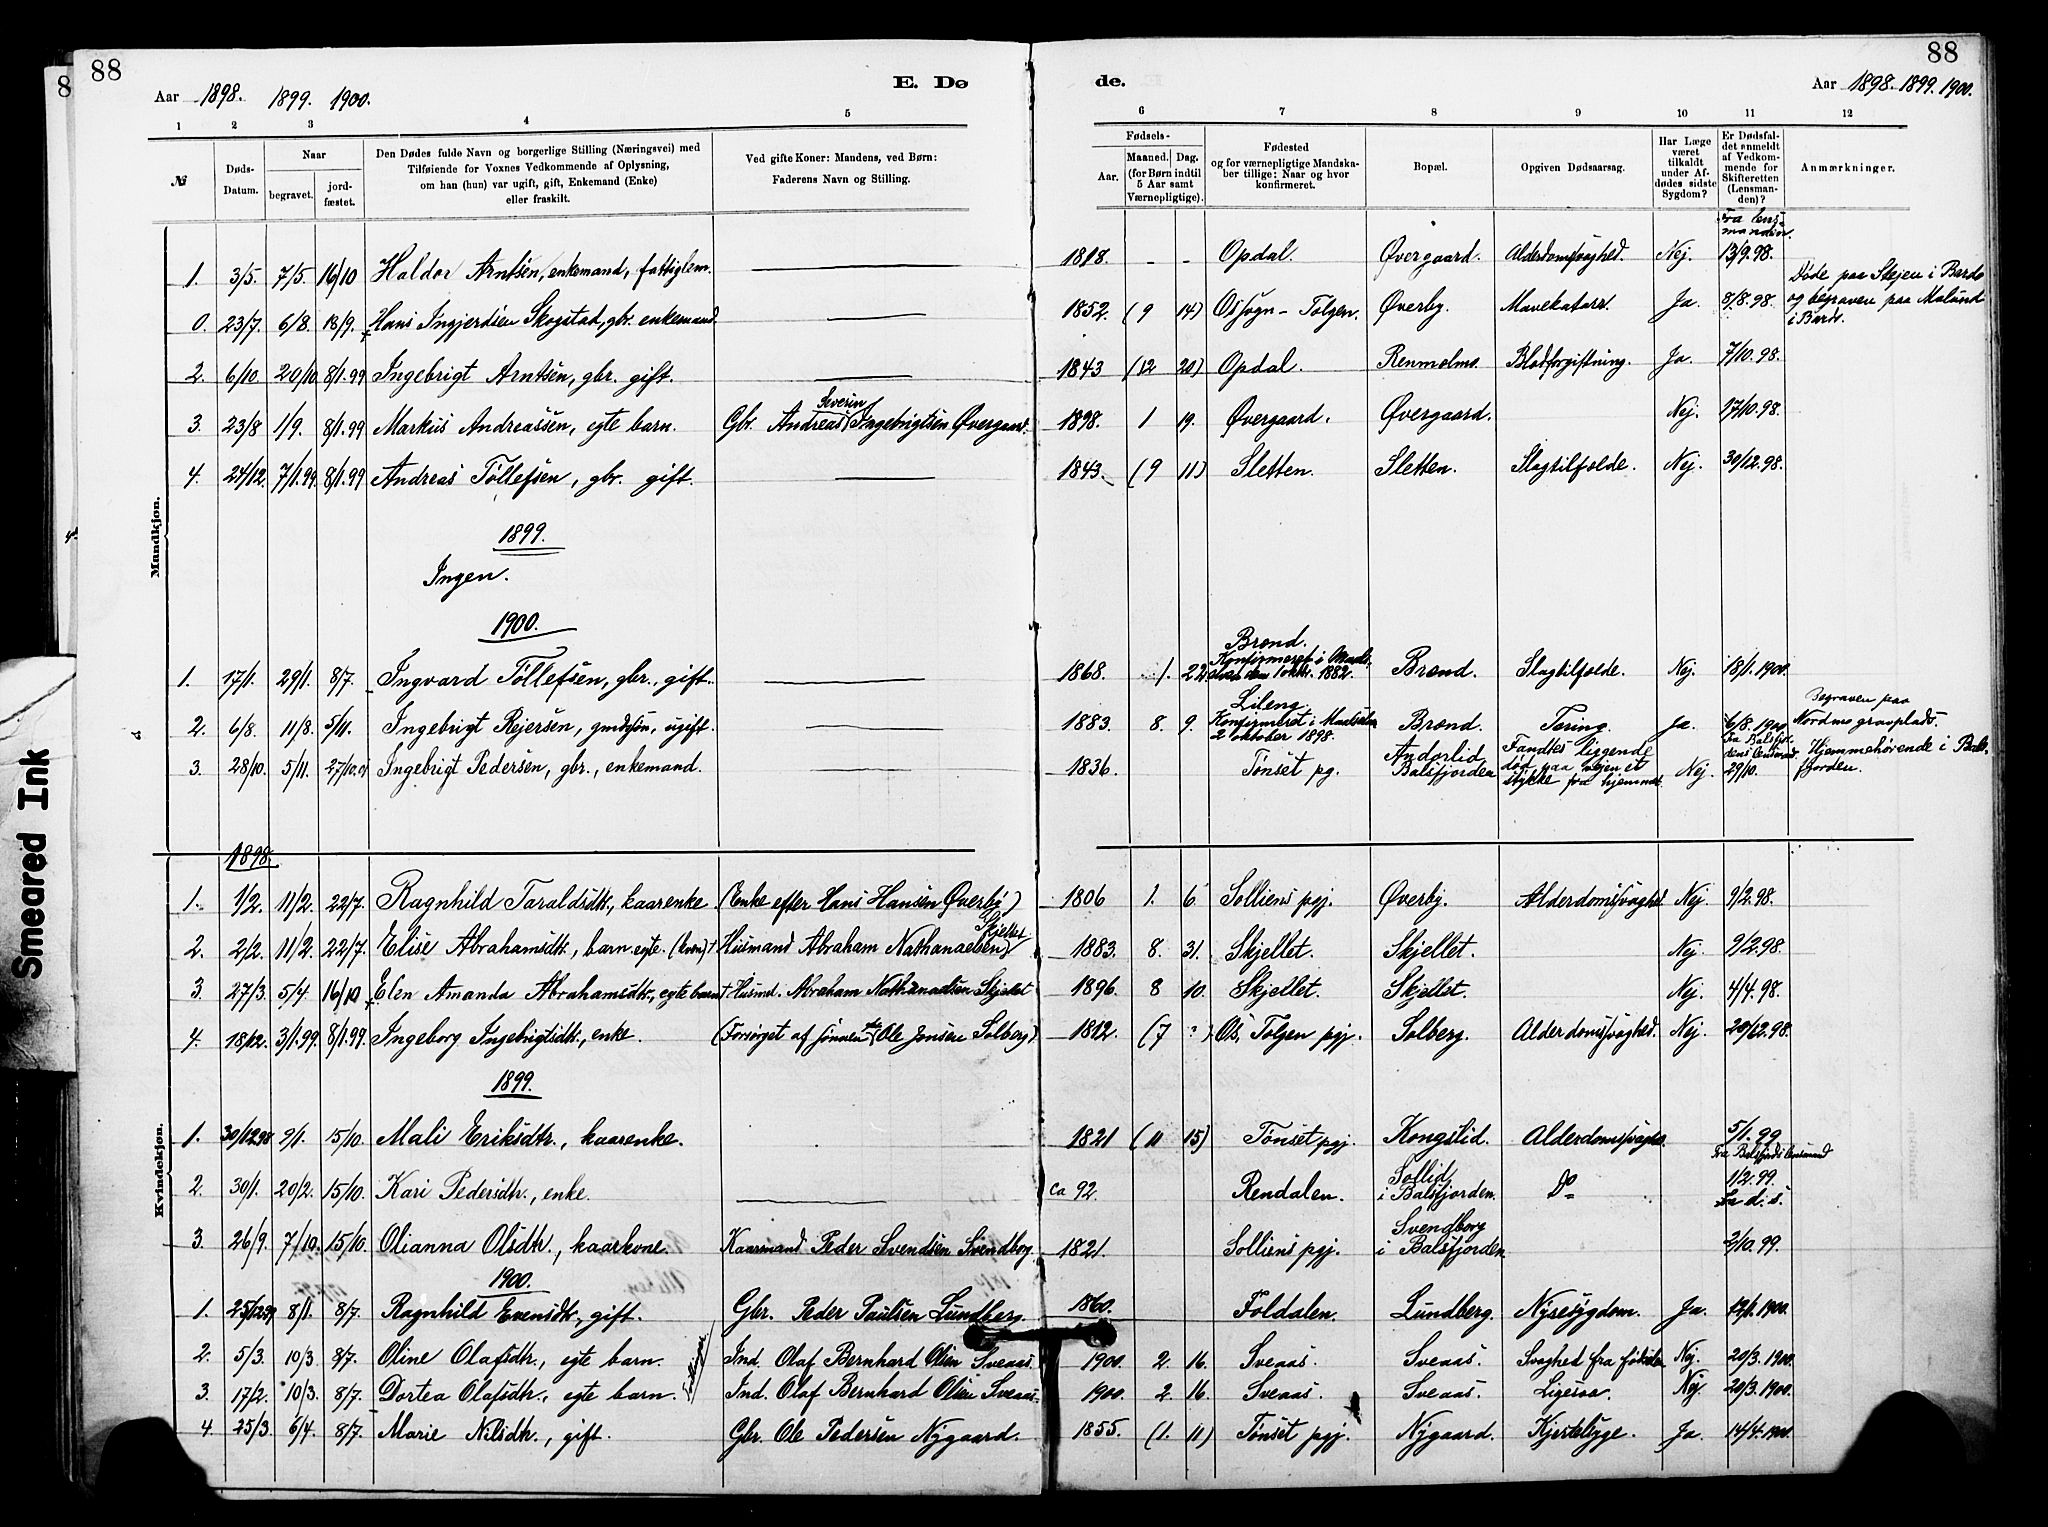 88
88
8
Aar 1898. 1899. 1900.
E. Dø
de.
Aar 1898. 1899. 1900.
1 2 3 4 5 6 7 8 9 10 11 12
№
Døds-Datum.
Naar
begravet.
jord-fæstet.
Den Dødes fulde Navn og borgerlige Stilling (Næringsvei) med
Tilføiende for Voxnes Vedkommende af Oplysning,
om han (hun) var ugift, gift, Enkemand (Enke)
eller fraskilt.
Ved gifte Koner: Mandens, ved Børn:
Faderens Navn og Stilling.
Fødsels-
Aar.
Maaned. Dag.
(for Børn indtil
5 Aar samt
Værnepligtige).
Fødested
og for værnepligtige Mandska-
ber tillige: Naar og hvor
konfirmeret.
Bopæl.
Opgiven Dødsaarsag.
Har Læge
været
tilkaldt
under Af-
dødes sidste
Sygdom?
Er Dødsfal-
det anmeldt
af Vedkom-
mende for
Skifteretten
(Lensman-
den)?
Anmærkninger.
Mandkjøn.
Fra lens-
manden.
1. 3/5. 7/5. 16/10 Haldor Arntsen, enkemand, fattiglem. 1818. - - Opdal. Øvergaard. Alderdomssvaghed. Nej. 13/9.98.
0. 23/7. 6/8. 18/9. Hans Ingjerdsen Skogstad, gbr. enkemand. 1852. (9 14) Os sogn - Tolgen. Øverby. Mavekatarr. Ja. 8/8.98. Døde paa Stejen i Bardo
og begraven paa Moland
i Bardo.
2. 6/10. 20/10 8/1.99 Ingebrigt Arntsen, gbr. gift. 1843 (12 20) Opdal. Renmolmo. Blodforgiftning. Ja. 7/10.98.
3. 23/8 1/9. 8/1.99 Markus Andreassen, egte barn. Gbr. Andreas Severin Ingebrigtsen Øvergaard. 1898. 1 19. Øvergaard. Øvergaard. Nej. 17/10.98.
4. 24/12. 7/1.99. 8/1.99 Andreas Tøllefsen, gbr. gift. 1843. (9 11) Sletten. Sletten. Slagtilfælde. Nej. 30/12.98.
1899.
Ingen.
1900.
1. 17/1. 29/1. 8/7. Ingvard Tøllefsen, gbr., gift. 1868. 1. 22. Brønd.
Konfirmeret i Maals-
elven den 1 oktbr. 1882. Brønd. Slagtilfælde. Nej. 18/1.1900.
2. 6/8. 11/8. 5/11. Ingebrigt Rejersen, gmdsøn, ugift. 1883. 8. 9. Lileng
Konfirmeret i Maalselv
2 oktober 1898. Brønd. Tæring. Ja. 6/8.1900 Begraven paa
Nordmo gravplads.
3. 28/10. 5/11. 27/10.01 Ingebrigt Pedersen, gbr., enkemand. 1836. Tønset pg. Andorlid
Balsfjorden Fandtes liggende
død paa vejen et
stykke fra hjemmet. Nej. Fra Balsfjor-
dens lensmand
29/10. Hjemmehørende i Bals-
fjorden.
Kvindekjøn.
1898.
1. 1/2. 11/2. 22/7. Ragnhild Taraldsdtr., kaarenke (Enke efter Hans Hansen Øverby) 1806 1. 6. Solliens pgj. Øverby. Alderdomssvaghed. Nej. 9/2.98.
2. 2/2. 11/2. 22/7. Elise Abrahamsdtr., barn egte. (kvæn) + Husmand Abraham Nathanaelsen Skjellet 1883. 8. 31. Skjellet. Skjellet. Nej 9/2.98.
3. 27/3. 5/4. 16/10 Elen Amanda Abrahamsdtr., egte barn + Husmd. Abraham Nathanaelsen Skjellet 1896. 8 10. Skjellet. Skjellet. Nej. 4/4.98.
4. 18/12. 3/1.99. 8/1.99. Ingeborg Ingebrigtsdtr., enke. (Forsørget af sønnen Ole Jonsen Solberg) 1812. (7 ?) Os, Tolgen pgj. Solberg. Alderdomssvaghed. Nej. 20/12.98.
1899.
1. 30/12.98 9/1. 15/10. Mali Eriksdtr., kaarenke. 1821 (11 15) Tønset pgj. Kongslid. Alderdomssvaghed. 5/1.99
2. 30/1. 20/2. 15/10. Kari Pedersdtr., enke. ca 92. Rendalen. Sollid
i Balsfjorden. Do Fra Balsfjords lensmand
1/2.99.
3. 26/9. 7/10. 15/10. Olianna Olsdtr., kaarkone. Kaarmand Peder Svendsen Svendborg. 1821. Solliens pgj. Svendborg
i Balsfjorden. Fra d. s.
3/10.99.
1900.
1. 25/12.99 8/1. 8/7. Ragnhild Evensdtr., gift. Gbr. Peder Paulsen Lundberg. 1860. Foldalen. Lundberg. Nyresygdom. Ja. 12/1.1900.
2. 5/3. 10/3. 8/7. Oline Olafsdtr., egte barn. Tvillinger Ind. Olaf Bernhard Olsen Sveaas. 1900. 2. 16. Sveaas. Sveaas. Svaghed fra fødselen Nej. 20/3.1900.
3. 17/2. 10/3. 8/7. Dortea Olafsdtr., egte barn. Ind. Olaf Bernhard Olsen Sveaas. 1900. 2. 16. Sveaas. Sveaas. Ligesaa. Nej. 20/3.1900.
4. 25/3. 6/4. 8/7. Marie Nilsdtr., gift. Gbr. Ole Pedersen Nygaard. 1855. (1. 11) Tønset pgj. Nygaard. Kjertelsyge. Ja. 14/4.1900
Smeared Ink